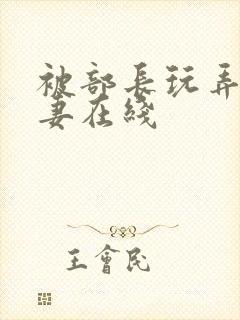 被部長玩弄
妻在綫
王會民